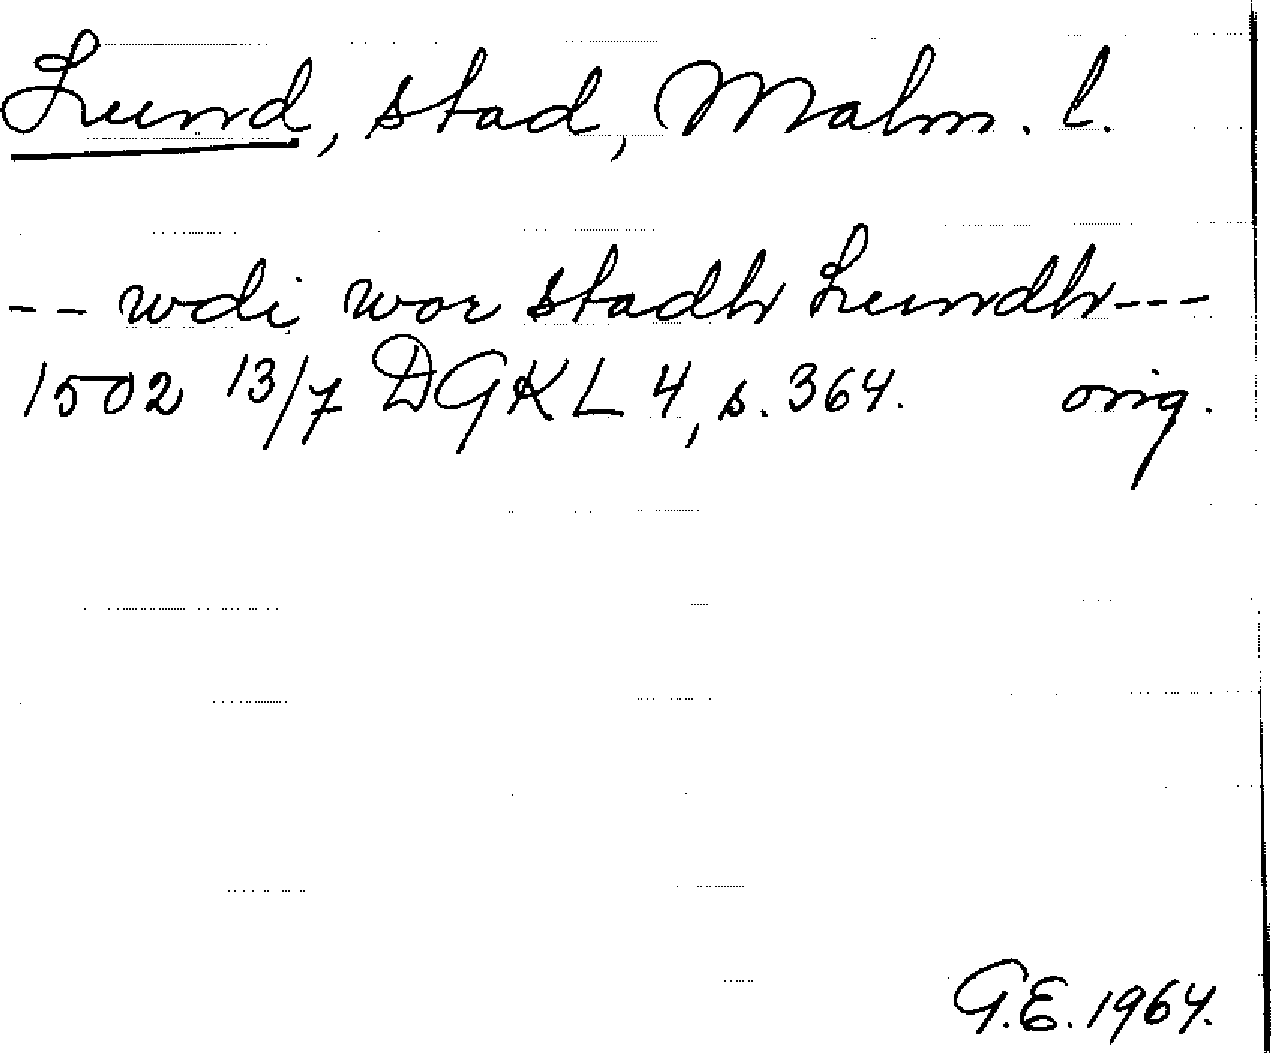 Lund, stad, Malm. l.
-- wdi wor stadh Lundh ---
1502 13/7 DGKL 4, s. 364. orig.
G.E. 1964.